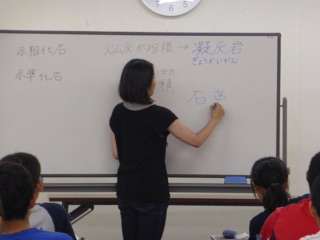 7 6 5
示相化石
火山灰が堆積 → 凝灰岩
ぎょうかいがん
示準化石
積
石